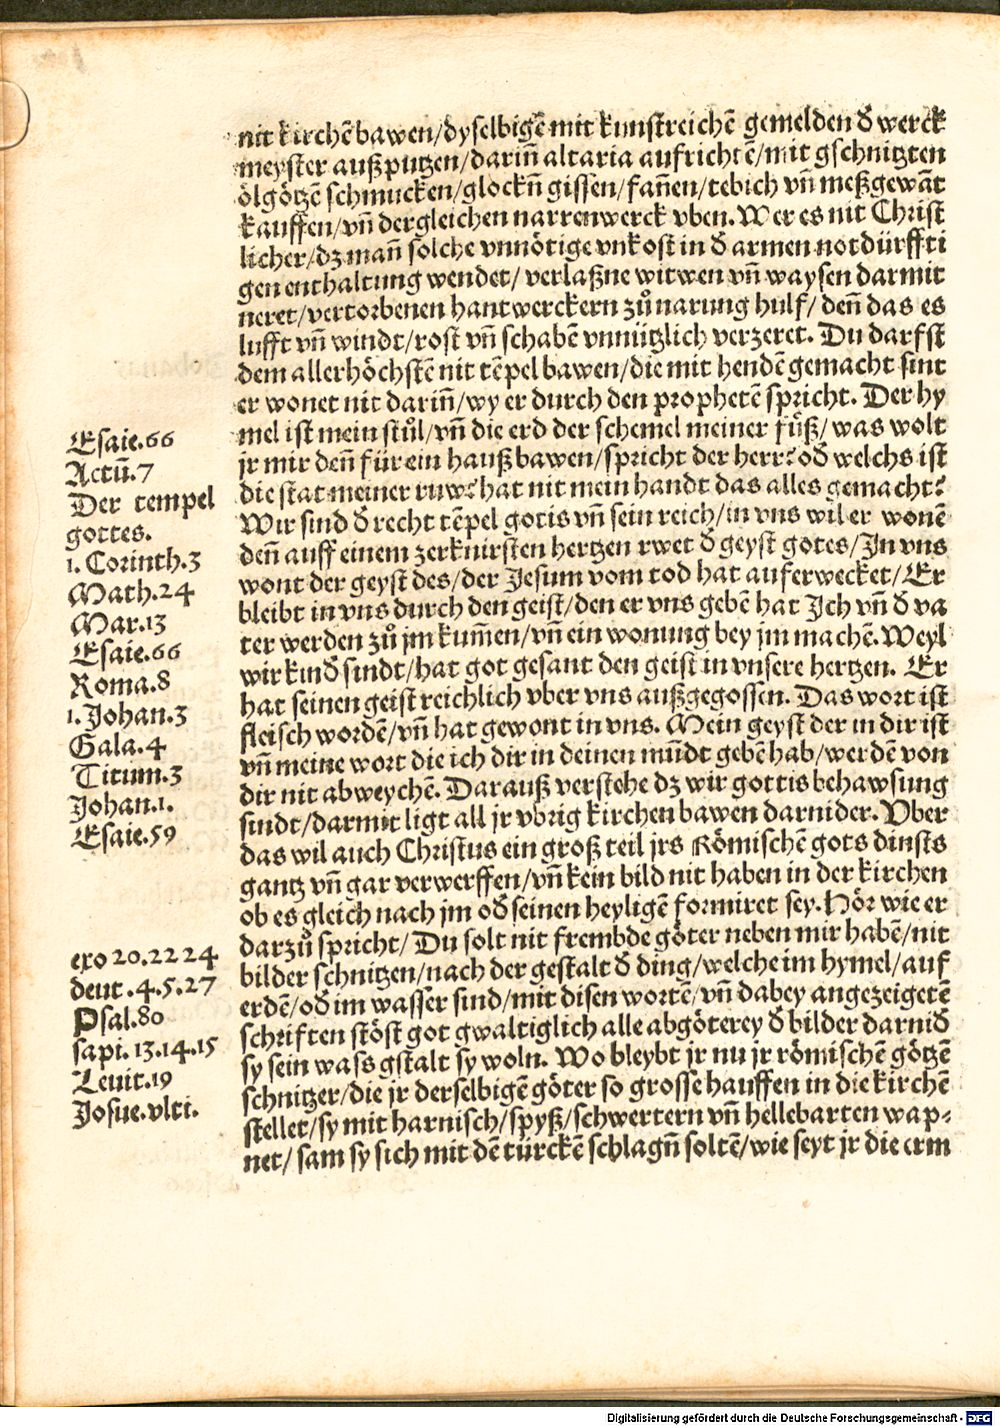 nit kirchē bawen/dyselbigē mit kunstreichē gemelden ð werck
meyster außputzen/dariñ altaria aufrichtē/mit gschnitzten
ölgötzē schmucken/glockñ gissen/fañen/tebich vñ meßgewāt
kauffen/vñ dergleichen narrenwerck vben. Wer es nit Christ
licher/dz mañ solche vnnötige vnkost in ð armen notdürffti
gen enthaltung wendet/ verlaßne witwen vñ waysen darmit
neret/vertorbenen hantwerckern zůnarung hulf/ deñ das es
lufft vñ windt/rost vñ schabē vnnützlich verzeret. Du darfst
dem allerhöchstē nit tēpel bawen/die mit hendē gemacht sint
er wonet nit dariñ/wy er durch den prophetē spricht. Der hy
mel ist mein stůl/vñ die erd der schemel meiner füß/was wolt
jr mir deñ für ein hauß bawen/spricht der herr? oð welchs ist
die stat meiner ruw? hat nit mein handt das alles gemacht?
Wir sind ð recht tēpel gotis vñ sein reich/in vns wil er wonē
deñ auff einem zerknirsten hertzen rwet ð geyst gotes/In vns
wont der geyst des/der Jesum vom tod hat auferwecket/Er
bleibt in vns durch den geist/den er vns gebē hat Ich vñ ð va
ter werden zů jm kum̄en/vñ ein wonung bey jm machē. Weyl
wir kinð sindt/hat got gesant den geist in vnsere hertzen. Er
hat seinen geist reichlich vber vns außgegossen. Das wort ist
fleisch wordē/vñ hat gewont in vns. Mein geyst der in dir ist
vñ meine wort die ich dir in deinen mūdt gebē hab/werdē von
dir nit abweychē. Darauß verstehe dz wir gottis behawsung
sindt/darmit ligt all jr vbrig kirchen bawen darnider. Vber
das wil auch Christus ein groß teil jrs Römischē gots dinsts
gantz vñ gar verwerffen/vñ kein bild nit haben in der kirchen
ob es gleich nach jm oð seinen heyligē formiret sey. Hör wie er
darzů spricht/Du solt nit frembde göter neben mir habē/nit
bilder schnitzen/nach der gestalt ð ding/welche im hymel/auf
erdē/oð im wasser sind/mit disen wortē/vñ dabey angezeigetē
schriften stöst got gwaltiglich alle abgöterey ð bilder darnið
sy sein wass gstalt sy woln. Wo bleybt jr nu jr römischē götzē
schnitzer/die jr derselbigē göter so grosse hauffen in die kirchē
stellet/sy mit harnisch/spyß/schwertern vñ hellebarten wap-
net/ sam sy sich mit dē türckē schlagñ soltē/wie seyt jr die erm
Esaie.66
Actū.7
Der tempel
gottes.
1. Corinth.3
Math.24
Mar.13
Esaie.66
Roma.8
1. Johan.3
Gala.4
Titum.3
Johan.1.
Esaie.59
exo 20.22 24
deut.4.5.27
Psal.80
sapi. 13.14.15
Leuit.19
Josue.vlti.
Digitalisierung gefördert durch die Deutsche Forschungsgemeinschaft - DFG